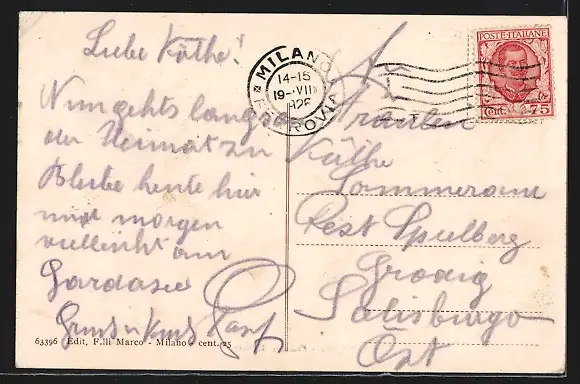 Liebe Käthe!
Nun gehts langsam
der Heimat zu
Bleibe heute hier
und morgen
vielleicht am
Gardasee
Gruss u Kuss
63396 Edit. F.lli Marco - Milano cent. 25
MILANO
14-15
19-VIII
FERROVIA
POSTE ITALIANE
Cent. 75
An
Fräulein
Käthe
Sommerau
Post
Grödig
Salisburgo
Öst